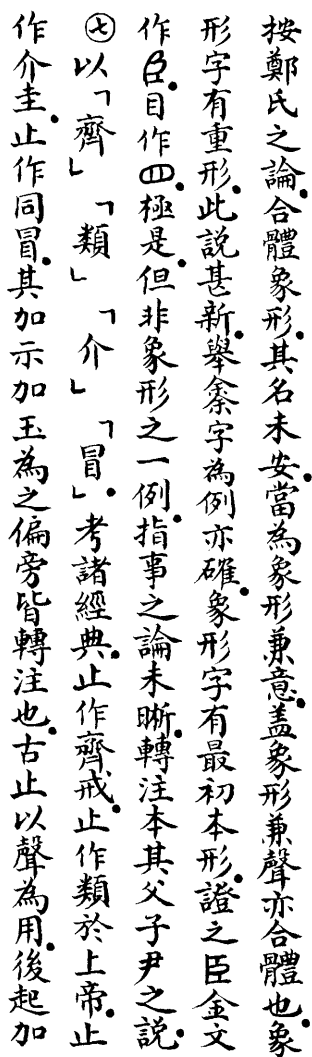 按鄭氏之論。合體象形。其名未安。當為象形兼意。盖象形兼聲亦合體也。象
形字有重形。此說甚新。舉𥻆字為例亦確。象形字有最初本形。證之臣金文
作。目作。極是。但非象形之一例。指事之論未晰。轉注本其父子尹之說。
㊆以「齊」「類」「介」「冒」。考諸經典。止作齊戒。止作類於上帝。止
作介圭。止作同冒。其加示加玉為之偏旁皆轉注也。古止以聲為用。後起加